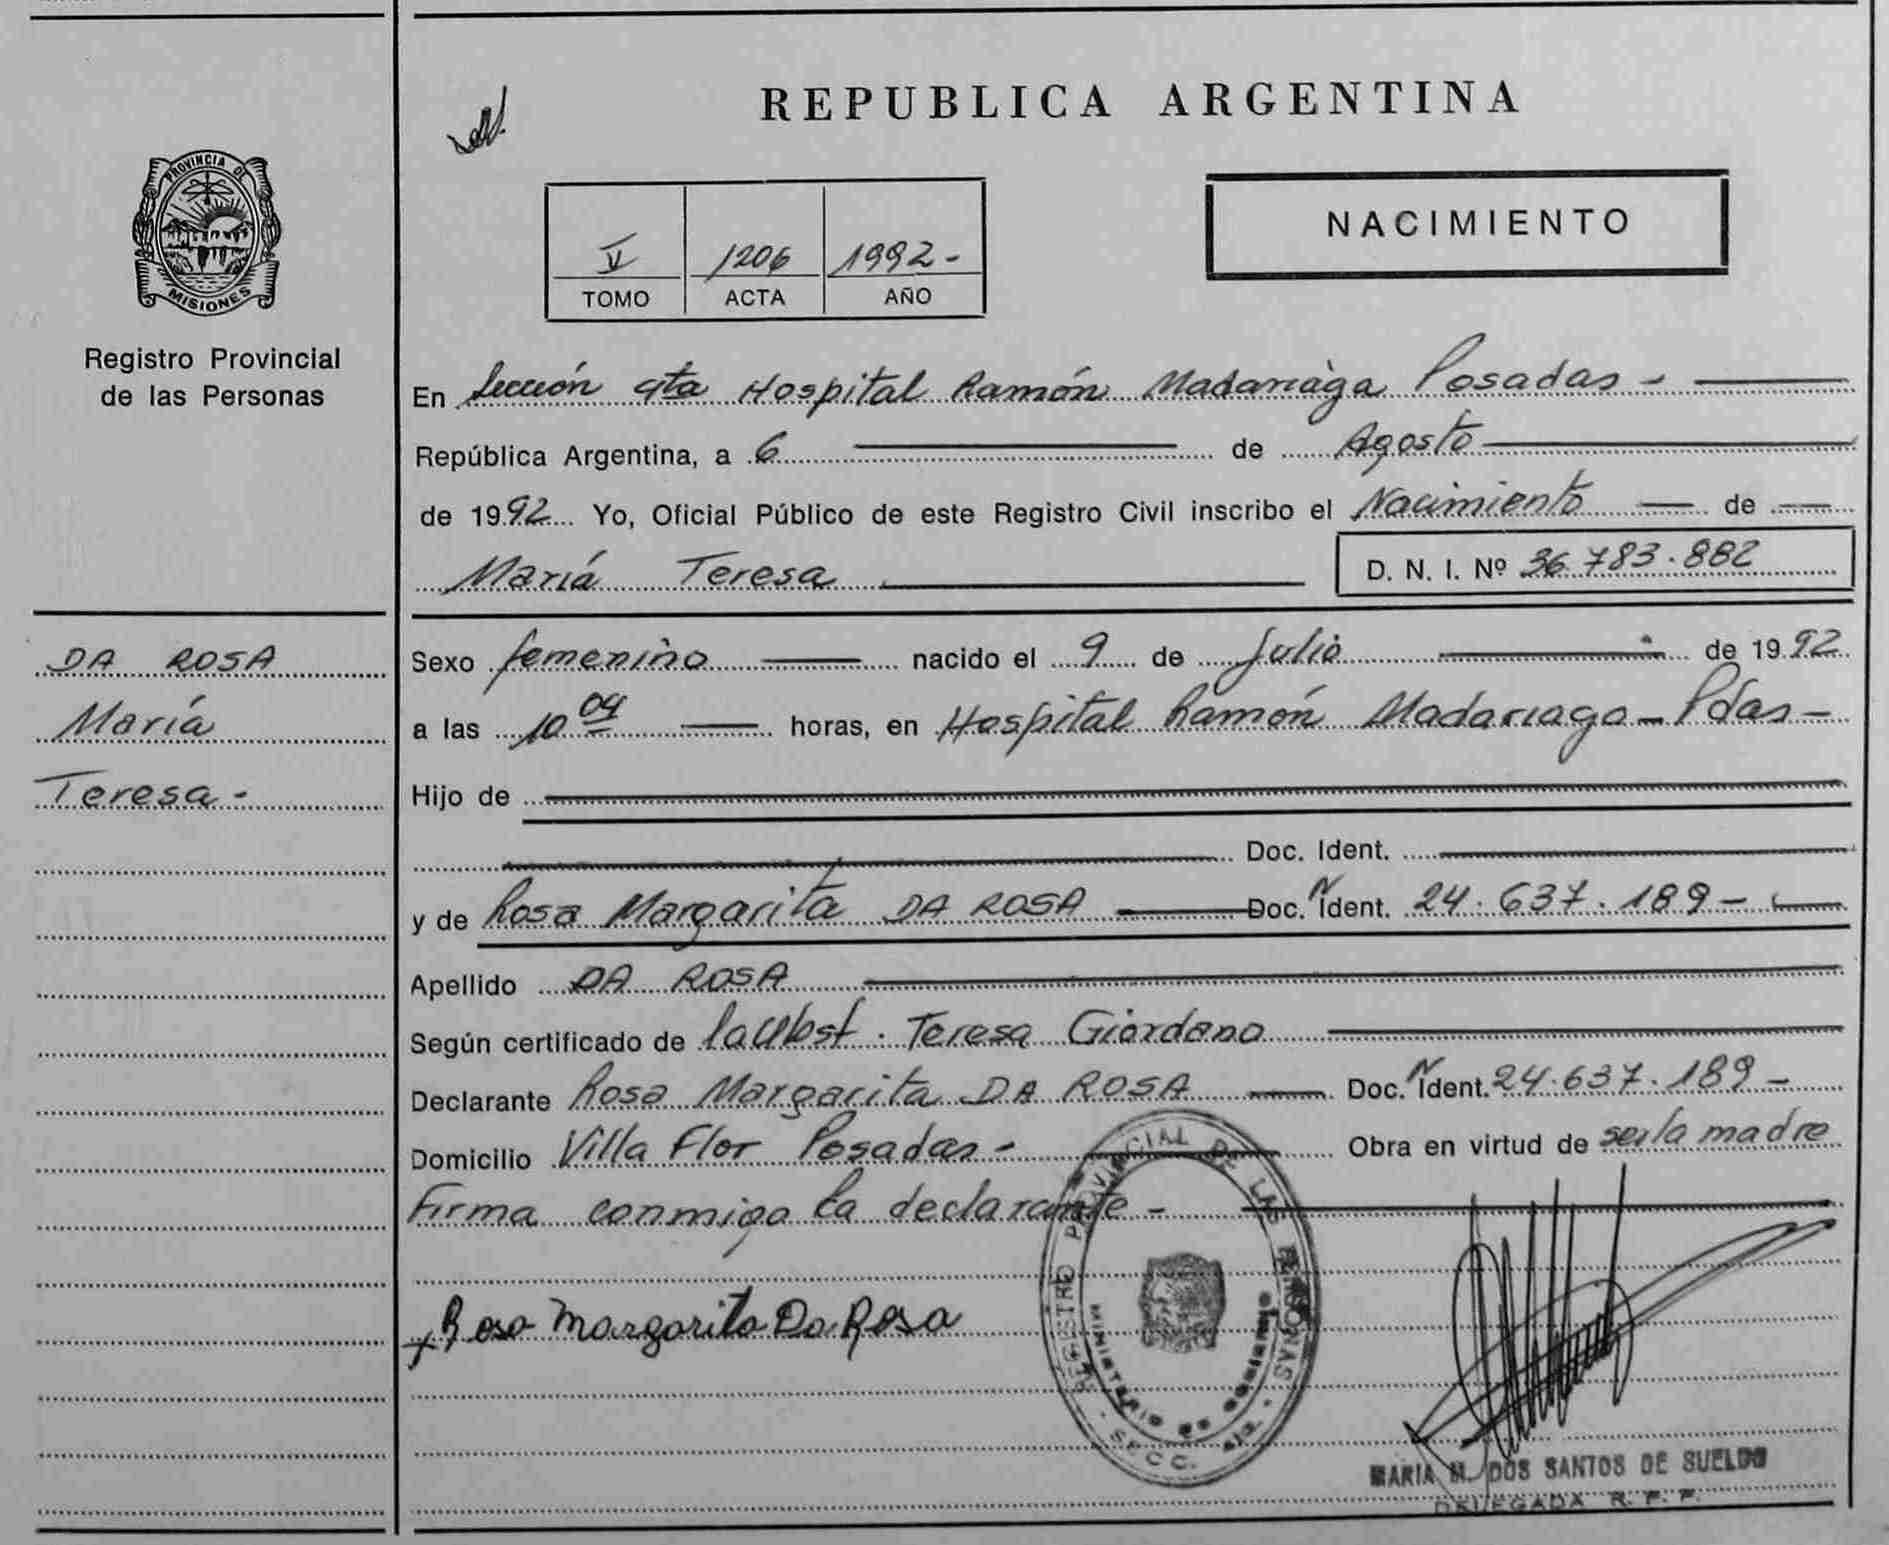 PROVINCIA DE
MISIONES
Registro Provincial
de las Personas
DA ROSA
María
Teresa -
REPUBLICA ARGENTINA
V 1206 1992 -
TOMO ACTA AÑO
NACIMIENTO
En Sección 4ta Hospital Ramón Madariaga Posadas -
República Argentina, a 6 de Agosto
de 1992 Yo, Oficial Público de este Registro Civil inscribo el Nacimiento de
María Teresa D. N. I. Nº 36.783.882
Sexo femenino nacido el 9 de Julio de 1992
a las 10 09 horas, en Hospital Ramón Madariaga - Pdas -
Hijo de
Doc. Ident.
y de Rosa Margarita DA ROSA Doc. N Ident. 24.637.189 -
Apellido DA ROSA
Según certificado de la Obst. Teresa Giordano
Declarante Rosa Margarita DA ROSA Doc. N Ident. 24.637.189 -
Domicilio Villa Flor Posadas - Obra en virtud de ser la madre
Firma conmigo la declarante -
Rosa Margarita Da Rosa
REGISTRO PROVINCIAL DE LAS PERSONAS
MINISTERIO DE GOBIERNO
SECC. 4ta.
MARIA M. DOS SANTOS DE SUELDO
DELEGADA R. P. P.